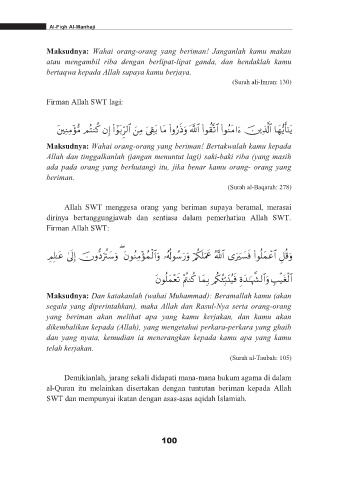 Al-Fiqh Al-Manhaji
Maksudnya: Wahai orang-orang yang beriman! Janganlah kamu makan
atau mengambil riba dengan berlipat-lipat ganda, dan hendaklah kamu
bertaqwa kepada Allah supaya kamu berjaya.
(Surah ali-Imran: 130)
Firman Allah SWT lagi:
يَٰٓأَيُّهَا ٱلَّذِينَ ءَامَنُوا۟ ٱتَّقُوا۟ ٱللَّهَ وَذَرُوا۟ مَا بَقِىَ مِنَ ٱلرِّبَوٰٓا۟ إِن كُنتُم مُّؤْمِنِينَ
Maksudnya: Wahai orang-orang yang beriman! Bertakwalah kamu kepada
Allah dan tinggalkanlah (jangan menuntut lagi) saki-baki riba (yang masih
ada pada orang yang berhutang) itu, jika benar kamu orang- orang yang
beriman.
(Surah al-Baqarah: 278)
Allah SWT menggesa orang yang beriman supaya beramal, merasai
dirinya bertanggungjawab dan sentiasa dalam pemerhatian Allah SWT.
Firman Allah SWT:
وَقُلِ ٱعْمَلُوا۟ فَسَيَرَى ٱللَّهُ عَمَلَكُمْ وَرَسُولُهُۥ وَٱلْمُؤْمِنُونَ ۖ وَسَتُرَدُّونَ إِلَىٰ عَٰلِمِ
ٱلْغَيْبِ وَٱلشَّهَٰدَةِ فَيُنَبِّئُكُم بِمَا كُنتُمْ تَعْمَلُونَ
Maksudnya: Dan katakanlah (wahai Muhammad): Beramallah kamu (akan
segala yang diperintahkan), maka Allah dan Rasul-Nya serta orang-orang
yang beriman akan melihat apa yang kamu kerjakan, dan kamu akan
dikembalikan kepada (Allah), yang mengetahui perkara-perkara yang ghaib
dan yang nyata, kemudian ia menerangkan kepada kamu apa yang kamu
telah kerjakan.
(Surah al-Taubah: 105)
Demikianlah, jarang sekali didapati mana-mana hukum agama di dalam
al-Quran itu melainkan disertakan dengan tuntutan beriman kepada Allah
SWT dan mempunyai ikatan dengan asas-asas aqidah Islamiah.
100